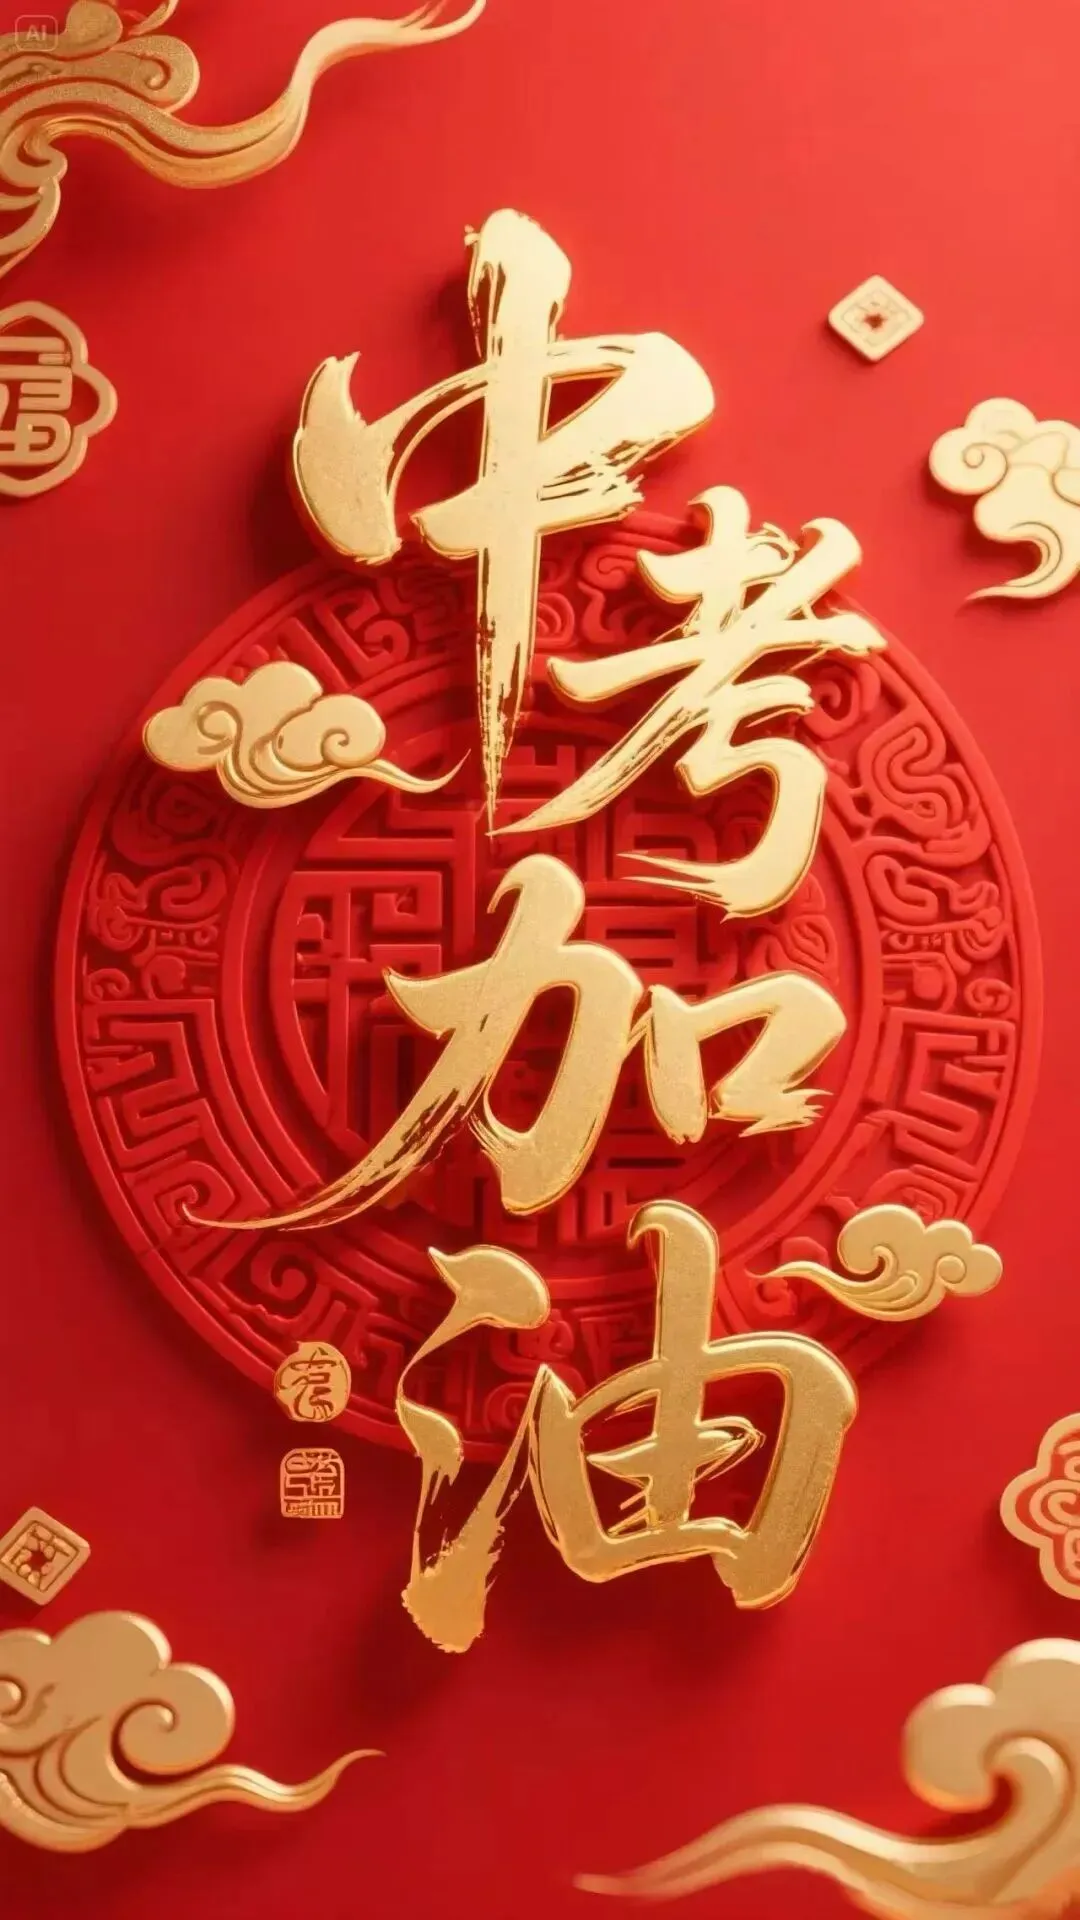 AI
中考
加
油